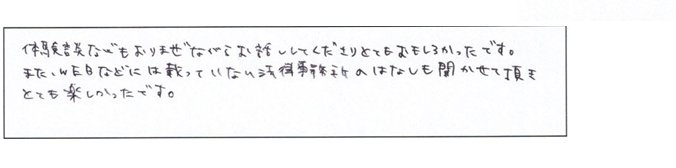 体験談などもおりまぜながらお話ししてくださりとてもおもしろかったです。
また、WEBなどには載っていない法律事務所のはなしも聞かせて頂き
とても楽しかったです。